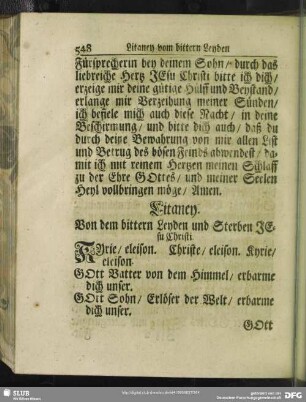 548 Litaney vom bittern Leyden
Fürsprecherin bey deinem Sohn / durch das
liebreiche Hertz JEsu Christi bitte ich dich /
erzeige mir deine gütige Hülff und Beystand /
erlange mir Verzeihung meiner Sünden /
ich befiele mich auch diese Nacht / in deine
Beschirmung / und bitte dich auch / daß du
durch deine Bewahrung von mir allen List
und Betrug des bösen Feinds abwendest / da-
mit ich mit reinem Hertzen meinen Schlaff
zu der Ehre GOttes / und meiner Seelen
Heyl vollbringen möge / Amen.
Litaney.
Von dem bittern Leyden und Sterben JE-
su Christi
KYrie / eleison. Christe / eleison. Kyrie /
eleison.
GOtt Vatter von dem Himmel / erbarme
dich unser.
GOtt Sohn / Erlöser der Welt / erbarme
dich unser.
GOtt
SLUB
DFG